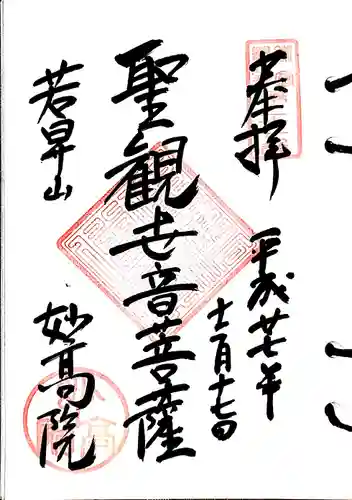 奉拝
平成廿七年
十二月十七日
聖観世音菩薩
若早山
妙高院